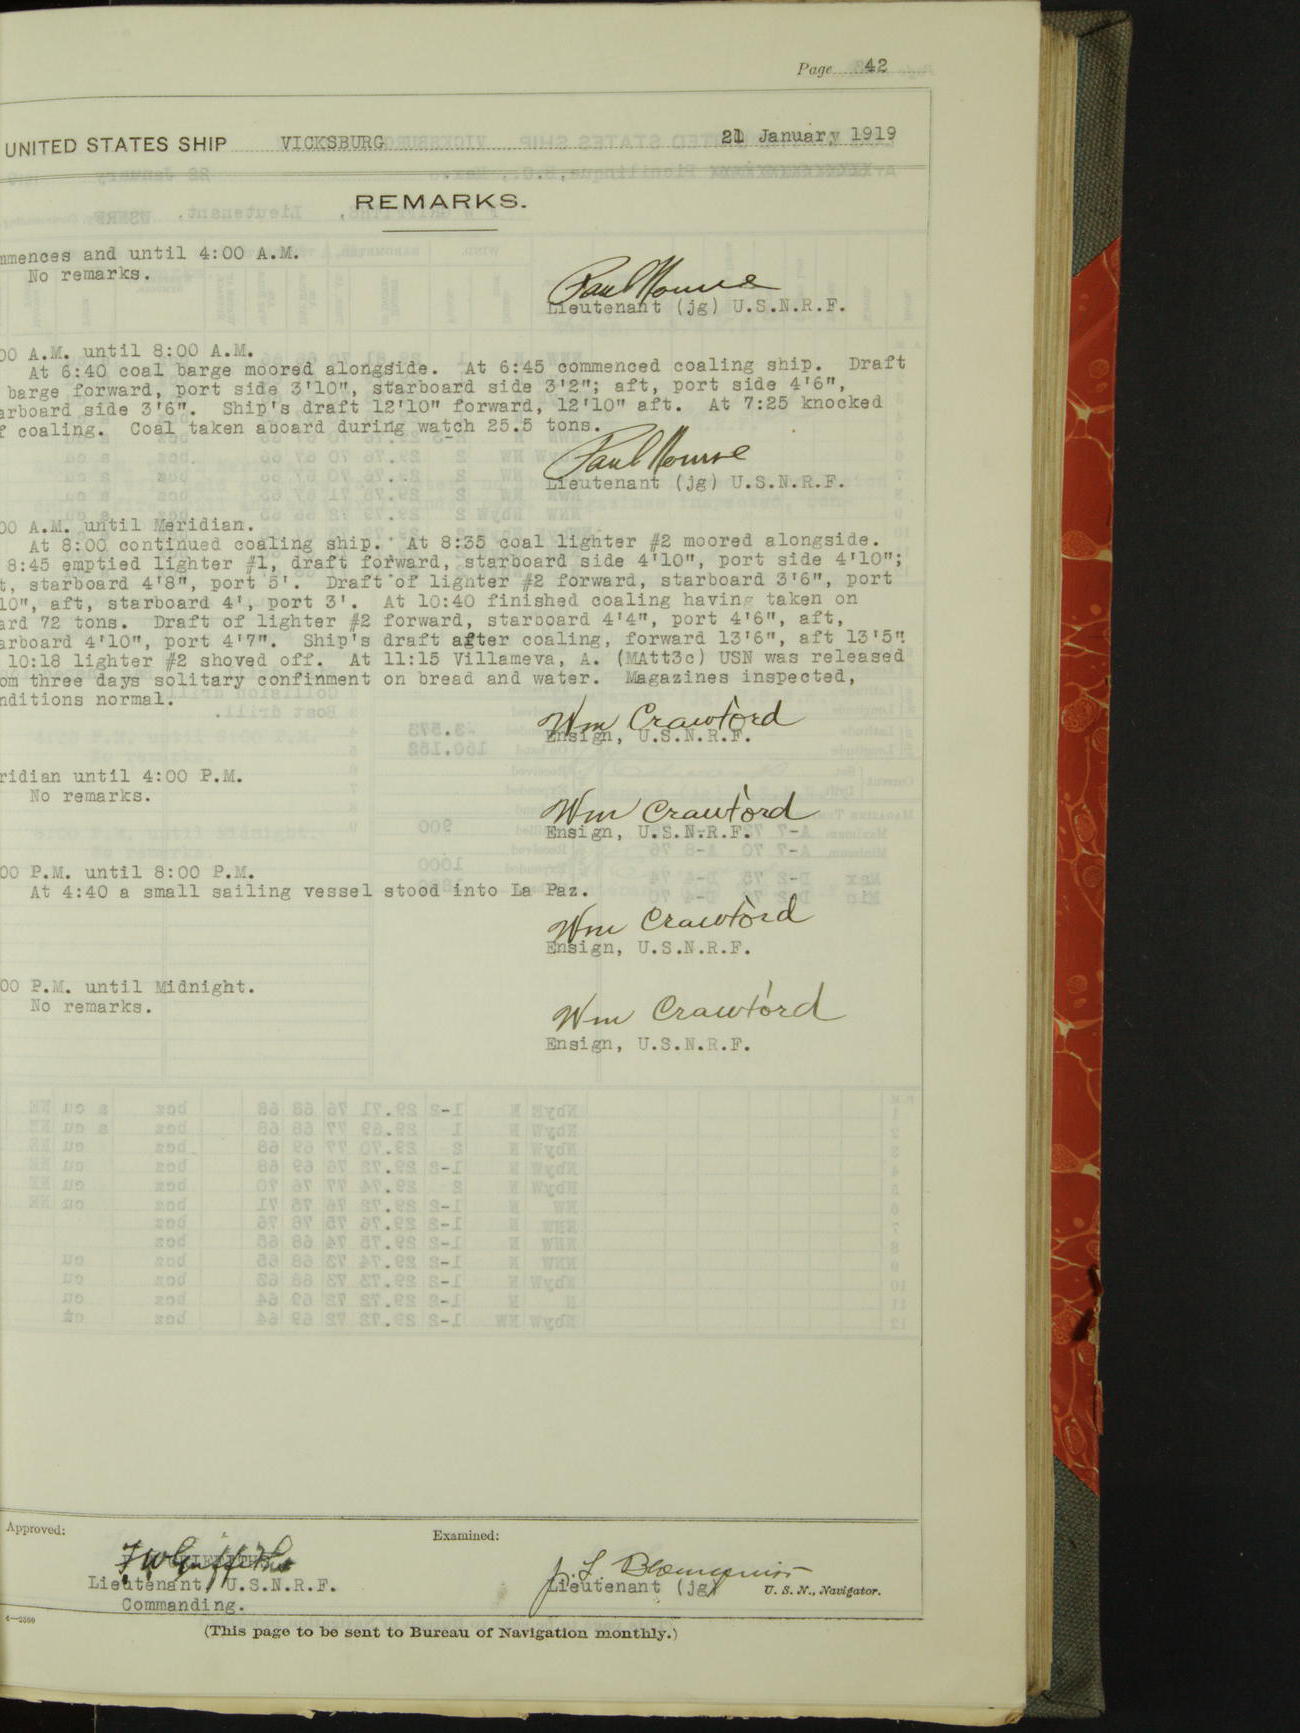 Page 42
UNITED STATES SHIP VICKSBURG 21 January 1919
REMARKS.
mmences and until 4:00 A.M.
No remarks.
Paul Monroe
Lieutenant (jg) U.S.N.R.F.
00 A.M. until 8:00 A.M.
At 6:40 coal barge moored alongside. At 6:45 commenced coaling ship. Draft
barge forward, port side 3'10", starboard side 3'2"; aft, port side 4'6",
arboard side 3'6". Ship's draft 12'10" forward, 12'10" aft. At 7:25 knocked
f coaling. Coal taken aboard during watch 25.5 tons.
Paul Monroe
Lieutenant (jg) U.S.N.R.F.
00 A.M. until Meridian.
At 8:00 continued coaling ship. At 8:35 coal lighter #2 moored alongside.
8:45 emptied lighter #1, draft forward, starboard side 4'10", port side 4'10";
t, starboard 4'8", port 5'. Draft of lighter #2 forward, starboard 3'6", port
10", aft, starboard 4', port 3'. At 10:40 finished coaling having taken on
ard 72 tons. Draft of lighter #2 forward, starboard 4'4", port 4'6", aft,
arboard 4'10", port 4'7". Ship's draft after coaling, forward 13'6", aft 13'5".
10:18 lighter #2 shoved off. At 11:15 Villameva, A. (MAtt3c) USN was released
om three days solitary confinment on bread and water. Magazines inspected,
nditions normal.
Wm Crawford
Ensign, U.S.N.R.F.
ridian until 4:00 P.M.
No remarks.
Wm Crawford
Ensign, U.S.N.R.F.
00 P.M. until 8:00 P.M.
At 4:40 a small sailing vessel stood into La Paz.
Wm Crawford
Ensign, U.S.N.R.F.
00 P.M. until Midnight.
No remarks.
Wm Crawford
Ensign, U.S.N.R.F.
Approved: Examined:
F W Griffiths J. L. Blomquist
Lieutenant, U.S.N.R.F. Lieutenant (jg) U. S. N., Navigator.
Commanding.
(This page to be sent to Bureau of Navigation monthly.)